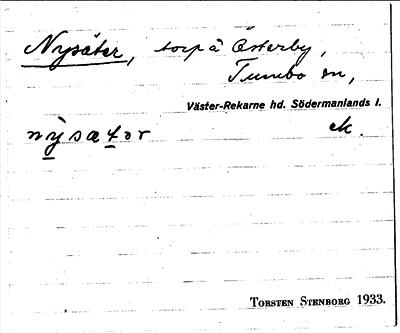 Nysäter, torp å Österby,
Tumbo sn,
Väster-Rekarne hd. Södermanlands l.
nẏsætər ek.
TORSTEN STENBORG 1933.